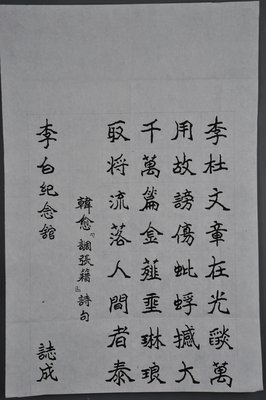 李杜文章在光燄萬
用故謗傷蚍蜉撼大
千萬篇金薤垂琳琅
取将流落人間者泰
韓愈「調張籍」詩句
李白紀念館 誌成